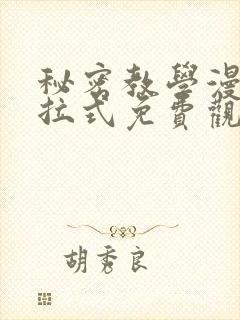 秘密教學漫
拉式免費觀
胡秀良